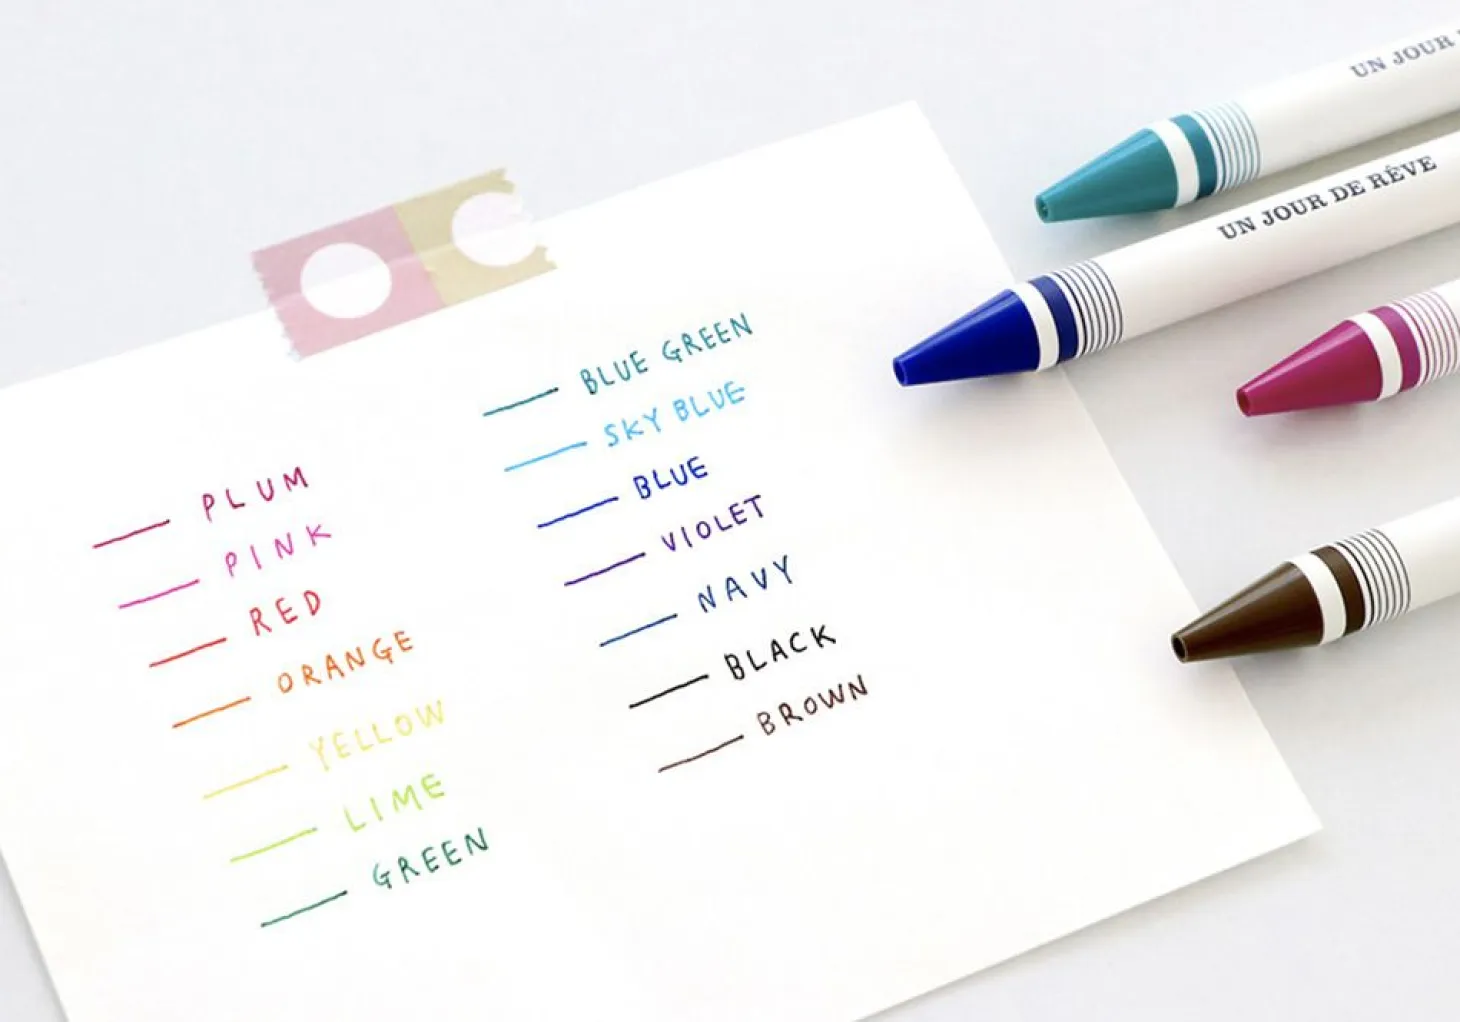 PLUM
PINK
RED
ORANGE
YELLOW
LIME
GREEN
BLUE GREEN
SKY BLUE
BLUE
VIOLET
NAVY
BLACK
BROWN
UN JOUR
UN JOUR DE RÊVE